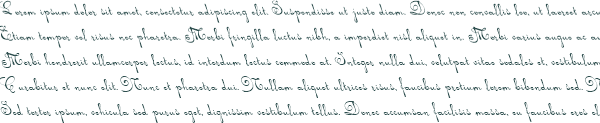 Lorem ipsum dolor sit amet, consectetur adipiscing elit. Suspendisse ut justo diam. Donec non convallis leo, ut laoreet arcu
Etiam tempor vel risus nec pharetra. Morbi fringilla luctus nibh, a imperdiet nisl aliquet in. Morbi varius augue ac au
Morbi hendrerit ullamcorper lectus, id interdum lectus commodo at. Integer nulla dui, volutpat vitae sodales et, vestibulum
Curabitur et nunc elit. Nunc et pharetra dui. Nullam aliquet ultrices risus, faucibus pretium lorem bibendum sed.
Sed tortor ipsum, vehicula sed purus eget, dignissim vestibulum tellus. Donec accumsan facilisis massa, eu faucibus eros